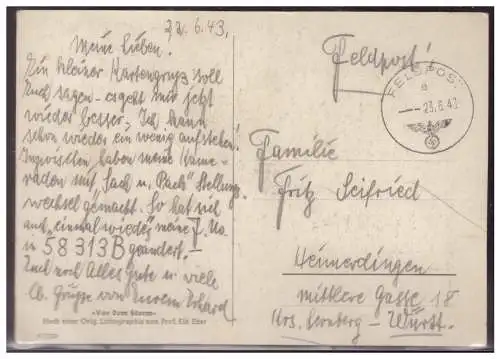 22.6.43.
Meine Lieben!
Ein kleiner Kartengruß soll
Euch sagen - es geht mir jetzt
wieder besser. Ich kann
schon wieder ein wenig aufstehen!
Inzwischen haben meine Kame-
raden mit "Sack u. Pack" Stellungs-
wechsel gemacht. So hat sich
auch "einmal wieder" meine F. No.
in 58313B geändert. -
Euch noch Alles Gute u. viele
lb. Grüße von Eurem Erhard
»Vor dem Sturm«
Nach einer Orig. Lithographie von Prof. Elk Eber
Feldpost!
FELDPOST
a
23.6.43
Familie
Fritz Seifried
Heimerdingen
Mittlere Gasse 18
Krs. Leonberg - Württ.